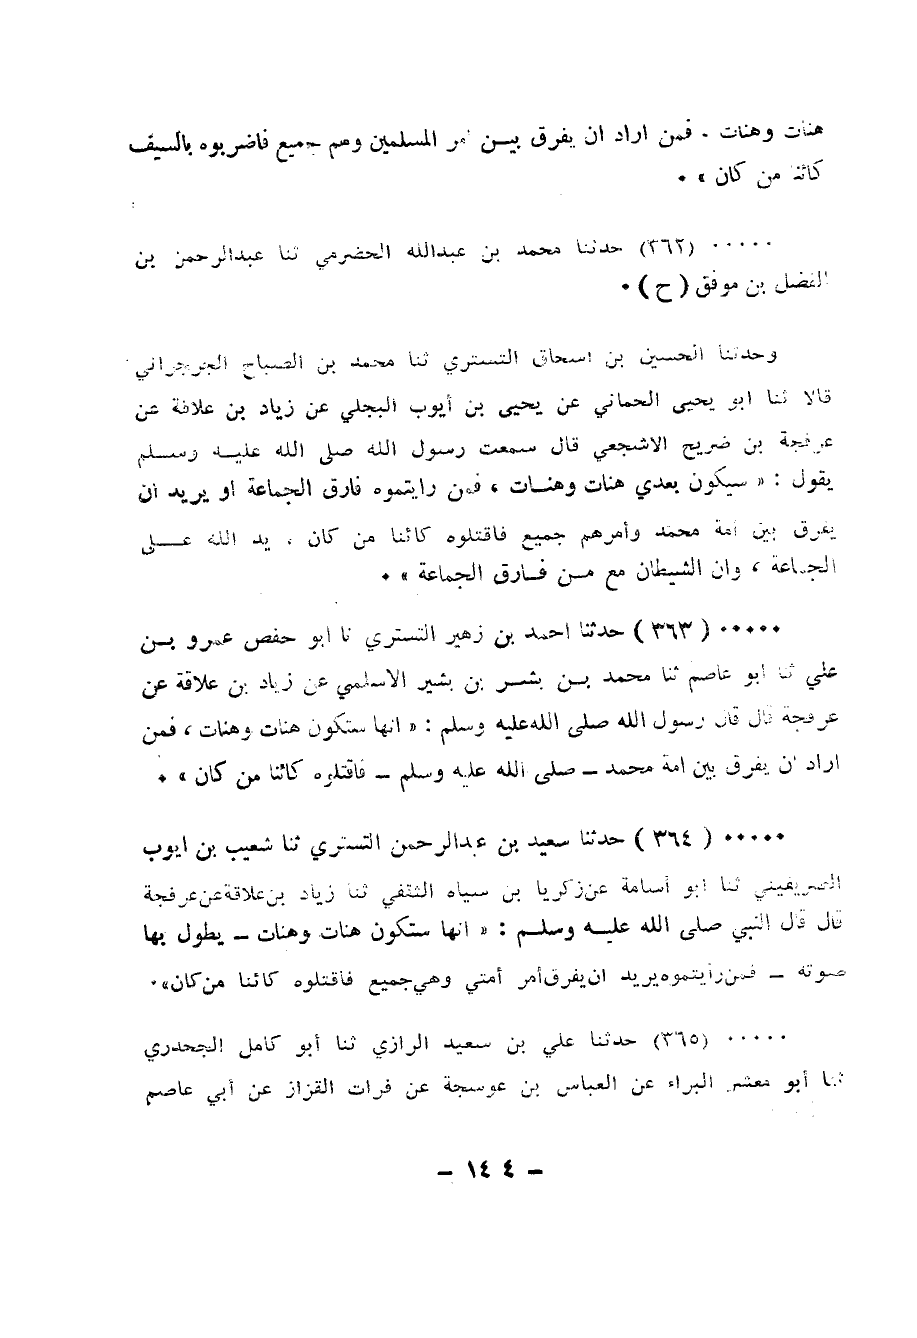 هنات وهنات ـ فمن اراد ان يفرق بيـن امر المسلمين وهم جميع فاضربوه بالسيف
كائنا من كان » ٠
٠٠٠٠٠ (٣٦٢) حدثنا محمد بن عبدالله الحضرمي ثنا عبدالرحمن بن
الفضل بن موفق ( ح ) ٠
وحدثنا الحسين بن اسحاق التستري ثنا محمد بن الصباح الجرجراني
قالا ثنا ابو يحيى الحماني عن يحيى بن أيوب البجلي عن زياد بن علاقة عن
عرفجة بن ضريح الاشجعي قال سمعت رسول الله صلى الله عليـه وسـلم
يقول : « سيكون بعدي هنات وهنـات ، فمن رايتموه فارق الجماعة او يريد ان
يفرق بين امة محمد وأمرهم جميع فاقتلوه كائنا من كان ، يد الله عـلى
الجماعة ، وان الشيطان مع مـن فـارق الجماعة » ٠
٠٠٠٠٠ ( ٣٦٣ ) حدثنا احمد بن زهير التستري نا ابو حفص عمرو بـن
علي ثنا ابو عاصم ثنا محمد بـن بشـر بن بشير الاسلمي عن زياد بن علاقة عن
عرفجة قال قال رسول الله صلى الله عليه وسلم : « انها ستكون هنات وهنات ، فمن
اراد ان يفرق بين امة محمد ـ صلى الله عليه وسلم ـ فاقتلوه كائنا من كان » ٠
٠٠٠٠٠ ( ٣٦٤ ) حدثنا سعيد بن عبدالرحمن التستري ثنا شعيب بن ايوب
الصريفيني ثنا ابو أسامة عن زكريا بن سياه الثقفي ثنا زياد بن علاقة عن عرفجة
قال قال النبي صلى الله عليـه وسلـم : « انها ستكون هنات وهنات ـ يطول بها
صوته ـ فمن رأيتموه يريد ان يفرق أمر أمتي وهي جميع فاقتلوه كائنا من كان» ٠
٠٠٠٠٠ (٣٦٥) حدثنا علي بن سعيد الرازي ثنا أبو كامل الجحدري
ثنا أبو معشر البراء عن العباس بن عوسجة عن فرات القزاز عن أبي عاصم
ـ ١٤٤ ـ